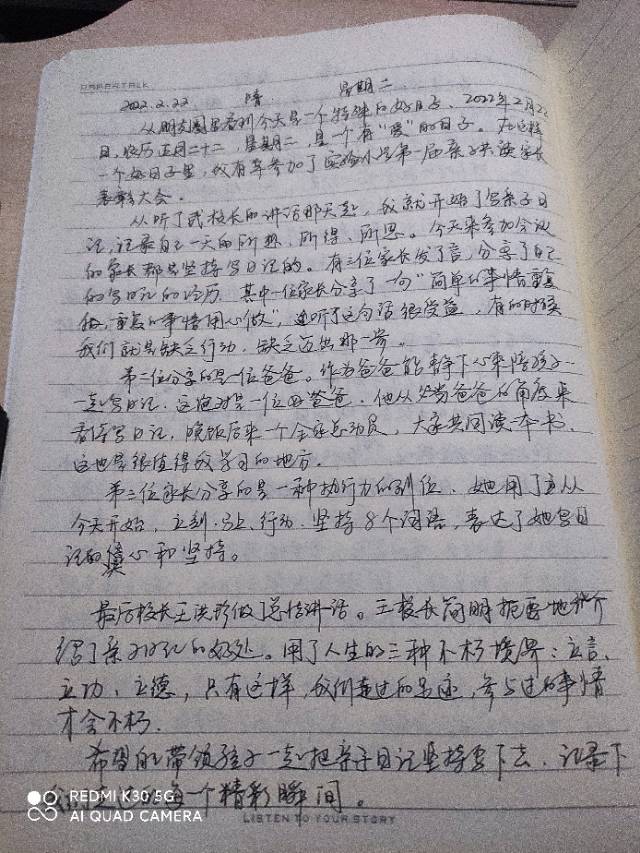 2022.2.22 晴 星期二
从朋友圈里看到今天是一个特殊的好日子、2022年2月22
日,农历正月二十二,星期二,是一个有“爱”的日子。在这样
一个好日子里,我有幸参加了实验小学第一届亲子共读家长
表彰大会。
从听了武校长的讲话那天起,我就开始了写亲子日
记,记录自己一天的所想、所得、所思。今天来参加会议
的家长都是坚持写日记的。有三位家长发了言,分享了自己
的写日记的经历 其中一位家长分享了一句“简单的事情重复
做,重复的事情用心做”,听了这句话很受益,有的时候
我们就是缺乏行动、缺乏迈出那一步。
第二位分享的是一位爸爸。作为爸爸能静下心来陪孩子
一起写日记、这绝对是一位好爸爸.他从当爸爸的角度来
看待写日记,晚饭后来一个全家总动员,大家共同读一本书.
这也是很值得我学习的地方.
第三位家长分享的是一种执行力的到位.她用了立从
今天开始,立刻.马上.行动.坚持8个词语,表达了她写日
记的信心和坚持。
最后校长王洪珍做了总结讲话。王校长简明扼要地介
绍了亲子日记的好处。用了人生的三种不朽境界:立言、
立功、立德,只有这样,我们走过的足迹,参与过的事情
才会不朽.
希望能带领孩子一起把亲子日记坚持写下去.记录下
每一个精彩瞬间。
LISTEN TO YOUR STORY
REDMI K30 5G
AI QUAD CAMERA